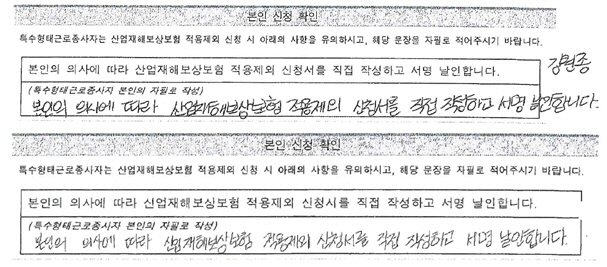 본인 신청 확인
특수형태근로종사자는 산업재해보상보험 적용제외 신청 시 아래의 사항을 유의하시고, 해당 문장을 자필로 적어주시기 바랍니다.
본인의 의사에 따라 산업재해보상보험 적용제외 신청서를 직접 작성하고 서명 날인합니다.
(특수형태근로종사자 본인의 자필로 작성)
본인의 의사에 따라 산업재해보상보험 적용제외 신청서를 직접 작성하고 서명 날인합니다.
강원종
본인 신청 확인
특수형태근로종사자는 산업재해보상보험 적용제외 신청 시 아래의 사항을 유의하시고, 해당 문장을 자필로 적어주시기 바랍니다.
본인의 의사에 따라 산업재해보상보험 적용제외 신청서를 직접 작성하고 서명 날인합니다.
(특수형태근로종사자 본인의 자필로 작성)
본인의 의사에 따라 산업재해보상보험 적용제외 신청서를 직접 작성하고 서명 날인합니다.